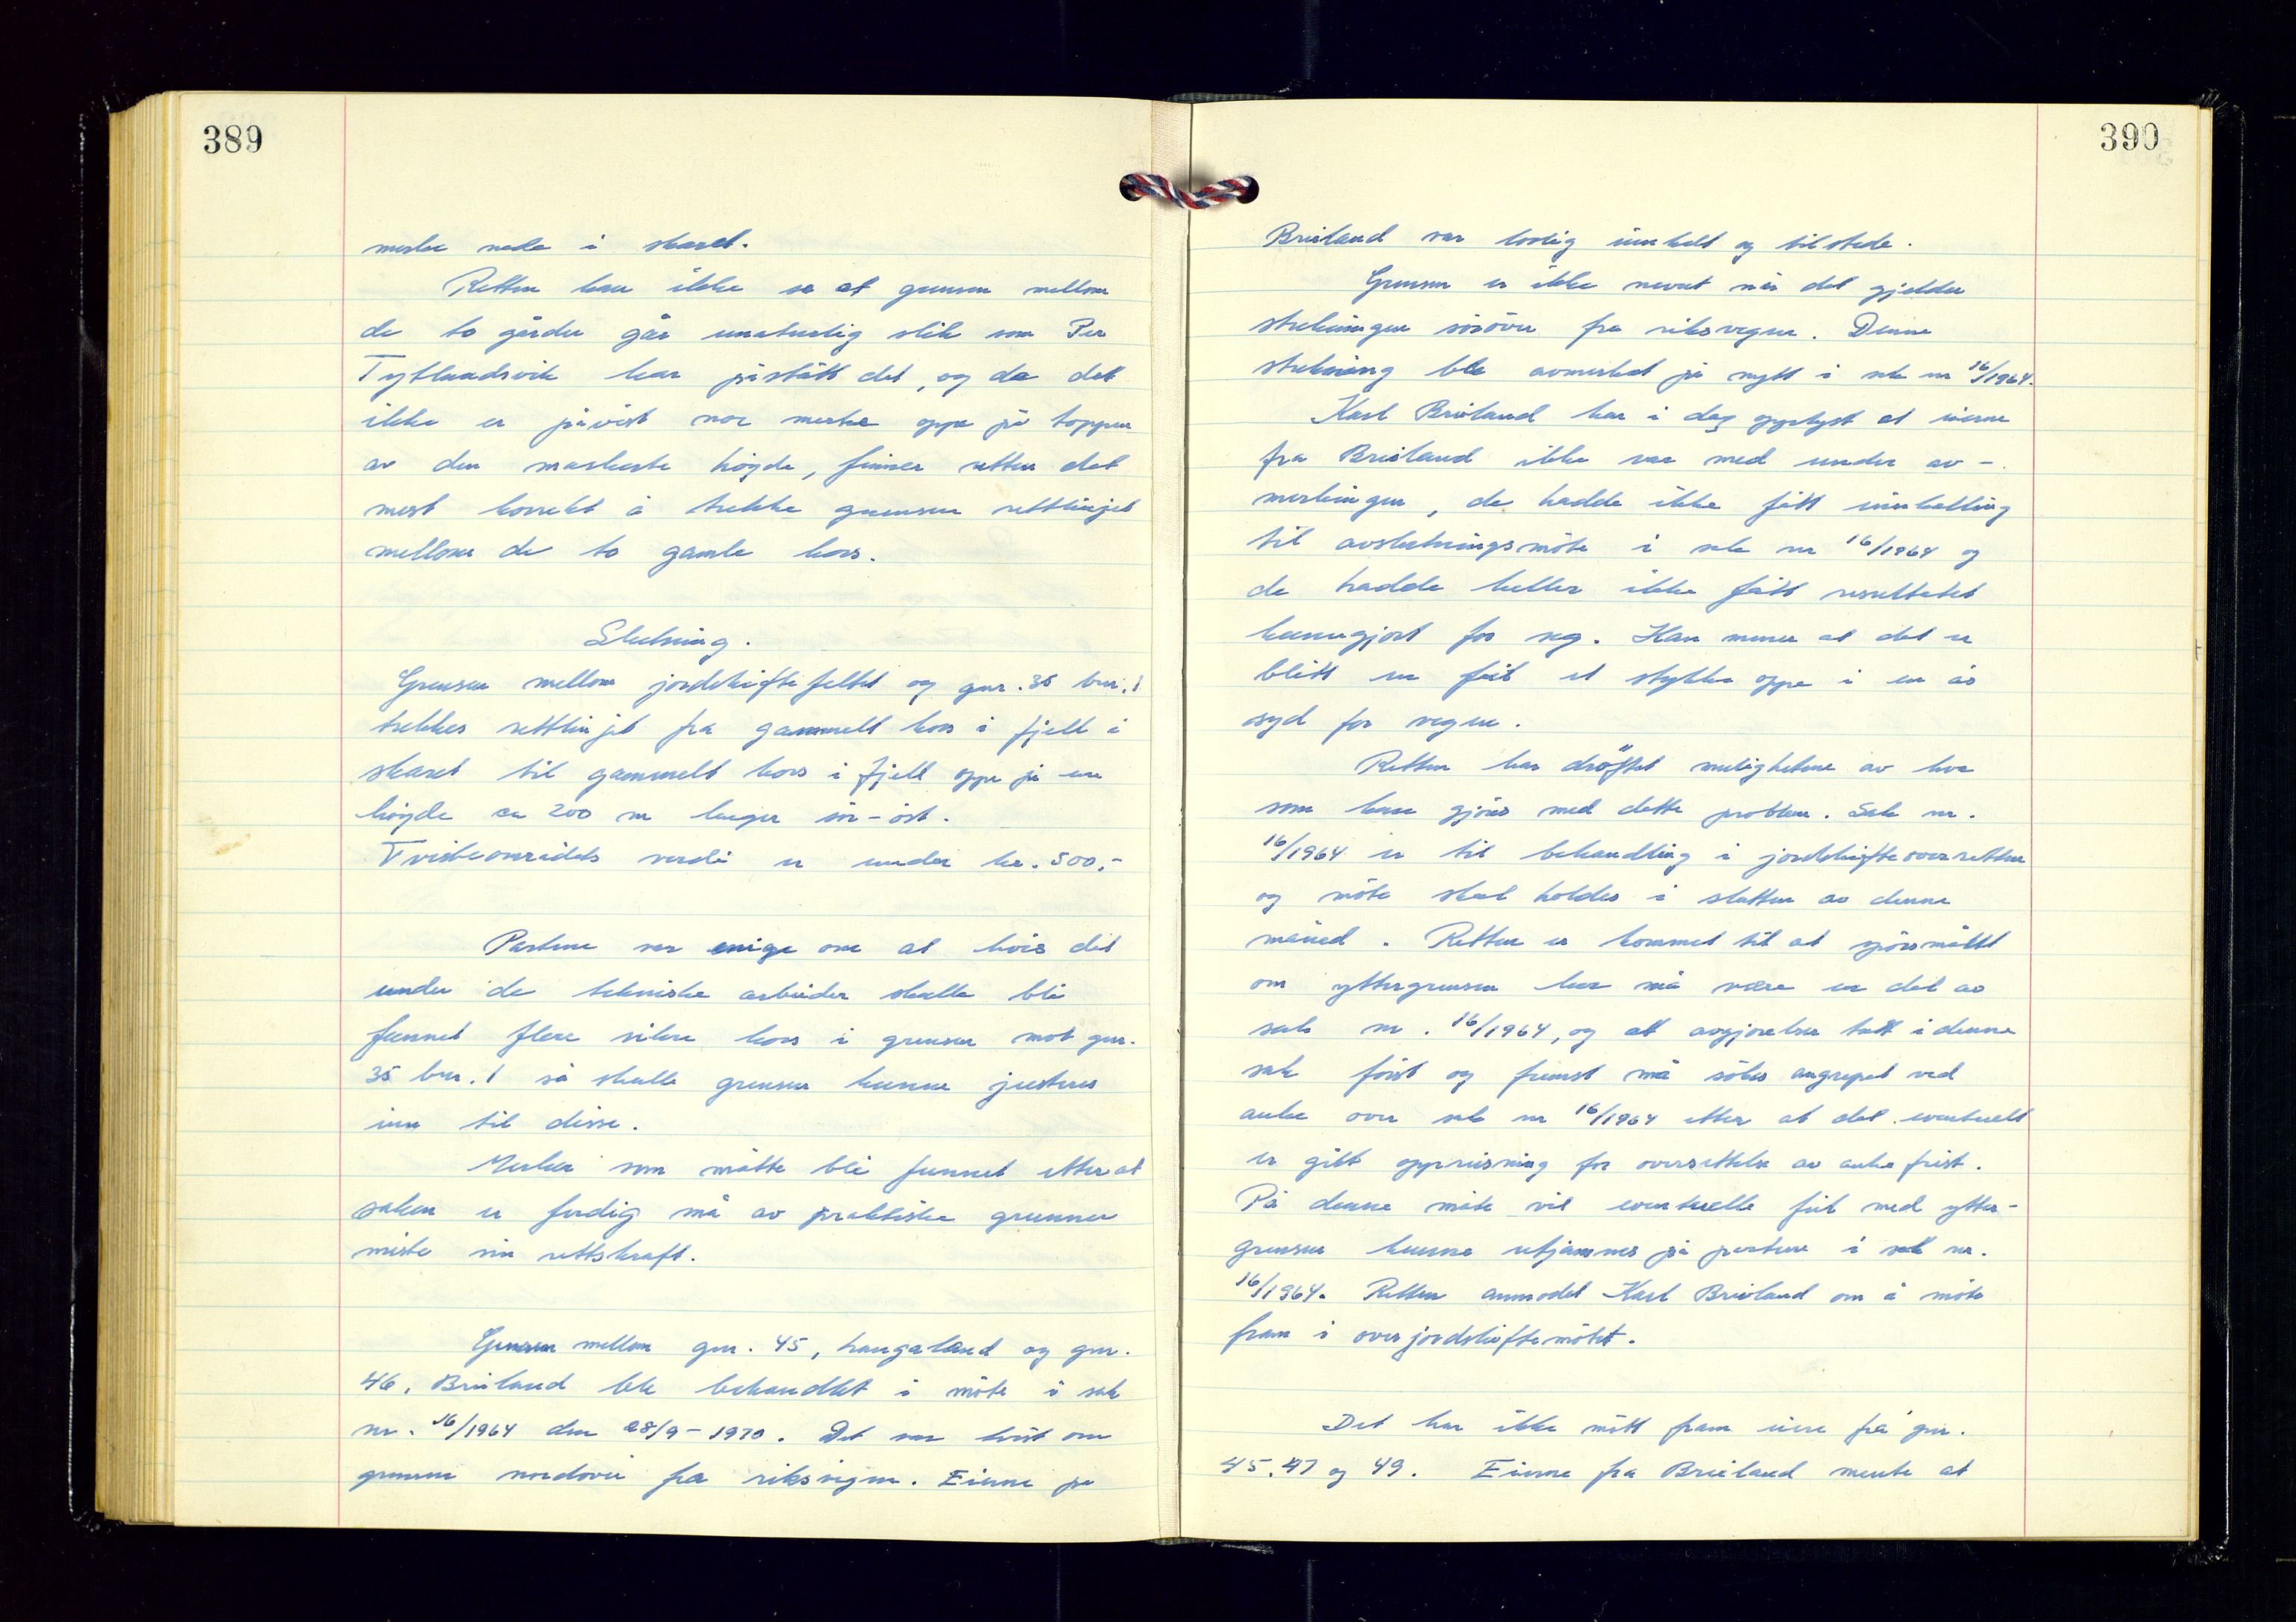 389
merke nede i skaret.
Retten kan ikke se at grensen mellom
de to gårder går unaturlig slik som Per
Tytlandsvik har påstått det, og da det
ikke er påvist noe merke oppe på toppen
av den markerte høgde, finner retten det
mest korrekt å trekke grensen rettlinjet
mellom de to gamle kors.
Slutning.
Grensen mellom jordskiftefeltet og gnr. 35 bnr. 1
trekkes rettlinjet fra gammelt kors i fjell i
skaret til gammelt kors i fjell oppe på en
høgde ca 200 m lenger sør-øst.
Tvisteområdets verdi er under kr. 500,-
Partene var enige om at hvis det
under de tekniske arbeider skulle bli
funnet flere sikre kors i grensen mot gnr.
35 bnr. 1 så skulle grensen kunne justeres
inn til disse.
Merker som måtte bli funnet etter at
saken er ferdig må av praktiske grunner
miste sin rettskraft.
Grensen mellom gnr. 45, Haugaland og gnr.
46, Breiland ble behandlet i møte i sak
nr. 16/1964 den 28/9-1970. Det var tvist om
grensen nordover fra riksvegen. Eierne på
390
Breiland var lovlig innkalt og tilstede.
Grensen er ikke nevnt når det gjelder
strekningen sørover fra riksvegen. Denne
strekning ble avmerket på nytt i sak nr 16/1964.
Karl Breiland har i dag opplyst at eierne
fra Breiland ikke var med under av-
merkingen, de hadde ikke fått innkalling
til avslutningsmøte i sak nr 16/1964 og
de hadde heller ikke fått resultatet
kunngjort for seg. Han mener at det er
blitt en feil et stykke oppe i en ås
syd for vegen.
Retten har drøftet mulighetene av hva
som kan gjøres med dette problem. Sak nr.
16/1964 er til behandling i jordskifteoverretten
og møte skal holdes i slutten av denne
måned. Retten er kommet til at spørsmålet
om yttergrensen her må være en del av
sak nr. 16/1964, og at avgjørelser tatt i denne
sak først og fremst må søkes angrepet ved
anke over sak nr 16/1964 etter at det eventuelt
er gitt oppreisning for oversittelse av ankefrist.
På denne måte vil eventuelle feil med ytter-
grensen kunne utjamnes på partene i sak nr.
16/1964. Retten anmodet Karl Breiland om å møte
fram i overjordskiftemøtet.
Det har ikke møtt fram eiere fra gnr.
45, 47 og 49. Eierne fra Breiland mente at